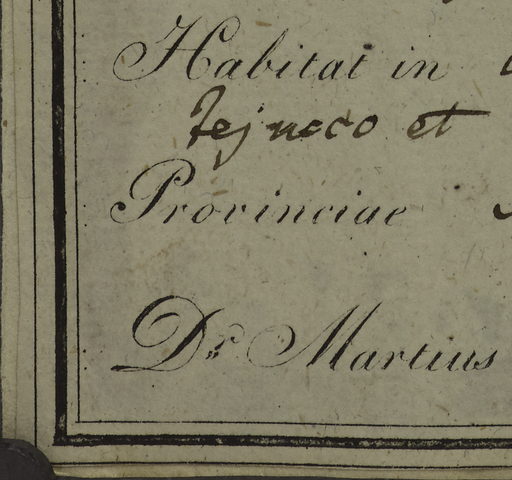 Habitat in
Tejucco et
Provinciae
Dr. Martius